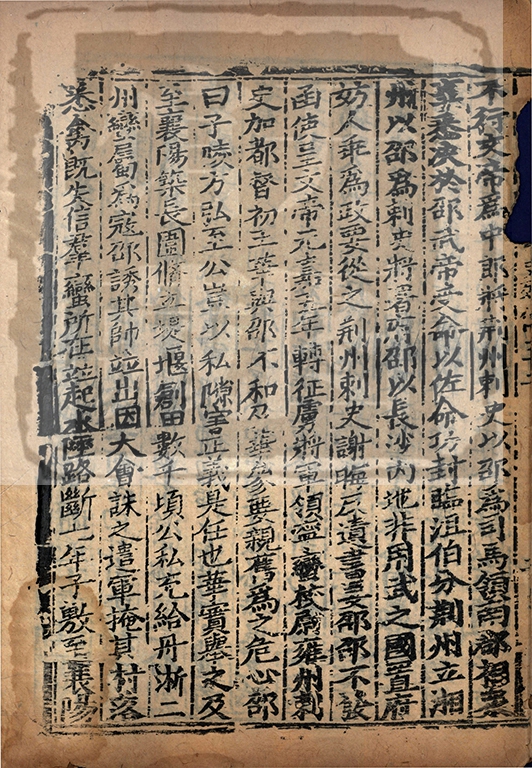 不行文帝爲中郎將荆州刺史以邵爲司馬領南郡相衆
事悉決於邵武帝受命以佐命功封臨沮伯分荆州立湘
州以邵爲刺史將署府邵以長沙內地非用武之國置府
妨人乖爲政要從之荆州刺史謝晦反遺書要邵邵不發
函使呈文帝元嘉五年轉征虜將軍領寧蠻校尉雍州刺
史加都督初王華與邵不和及華參要親舊爲之危心邵
曰子陵方弘至公豈以私隙害正義是任也華實舉之及
至襄陽築長圍脩立堤堰創田數千頃公私充給丹浙二
州蠻屬爲寇邵誘其帥竝出因大會誅之遣軍掩其村落
悉禽既失信羣蠻所在竝起水陸路斷七年子敷至襄陽